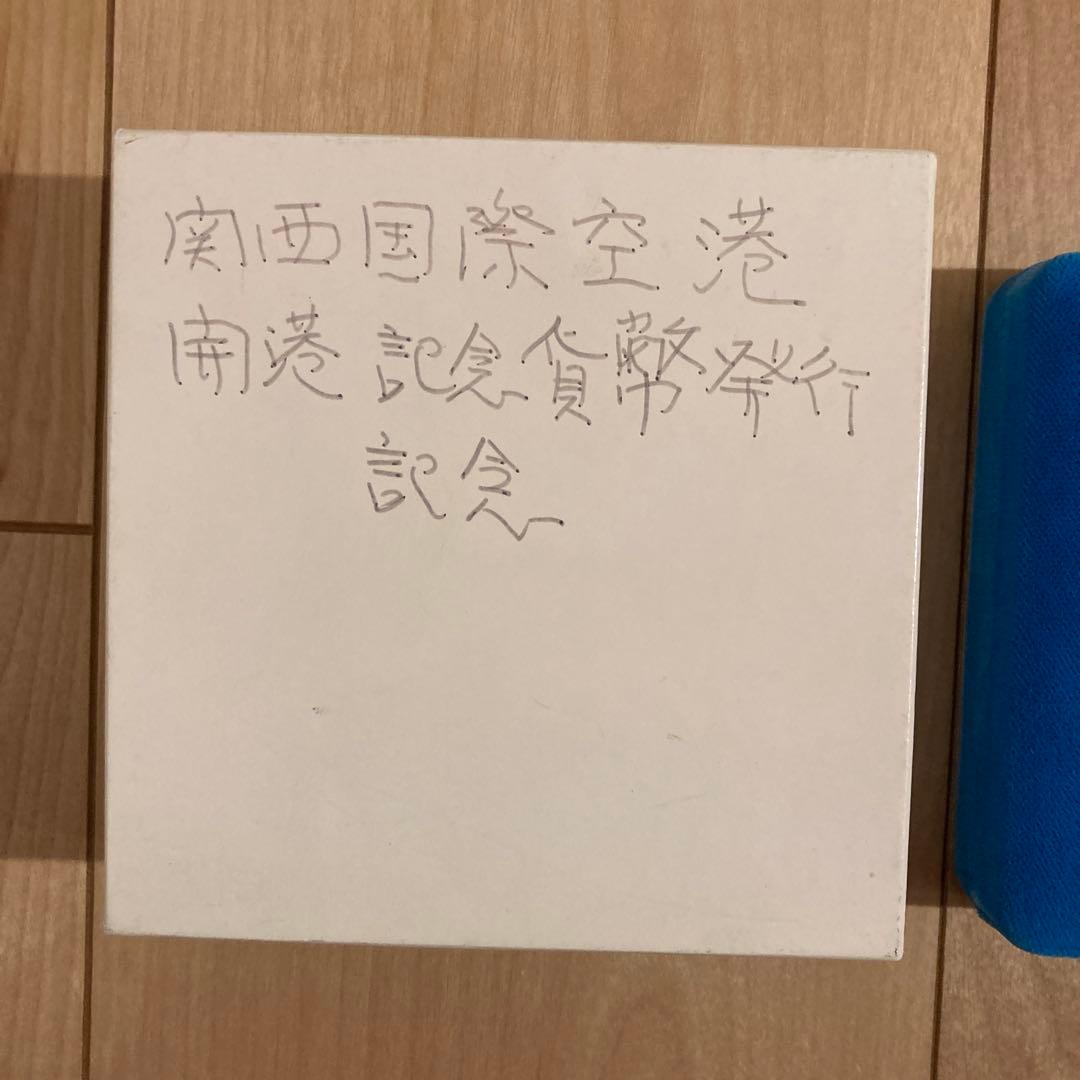 関西国際空港
開港記念貨幣発行
記念